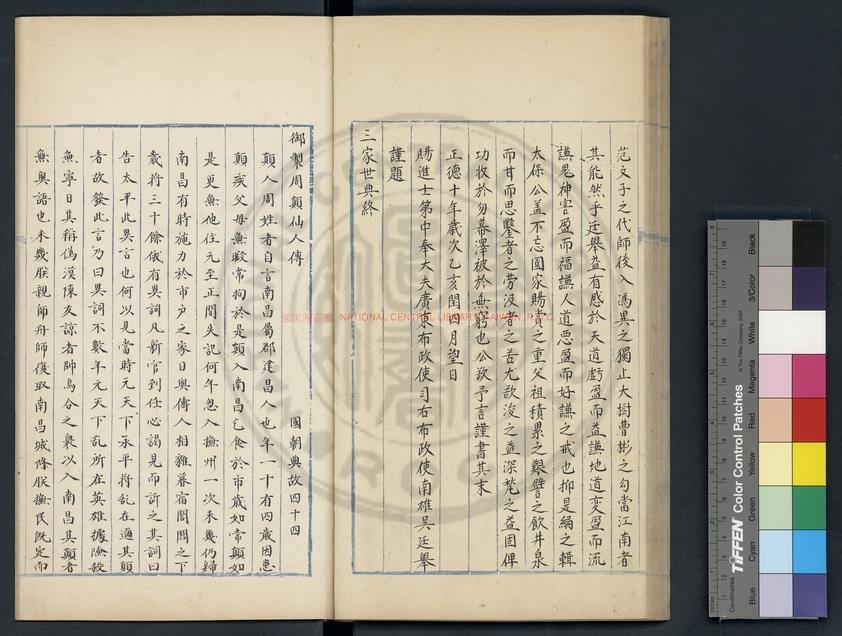 范文子之代師後入馮異之獨止大樹曹彬之勾當江南者
其能然乎廷舉益有感於天道虧盈而益謙地道変盈而流
謙鬼神害盈而福謙人道惡盈而好謙之戒也抑是編之輯
太保公盖不忘國家賜賚之重父祖積累之艱譬之飲井泉
而甘而思鑿者之劳汲者之苦尤欲浚之益深甃之益固俾
功收於勿幕澤被於無窮也公欲予言謹書其末
正德十年歲次乙亥閏四月望日
賜進士第中奉大夫廣東布政使司右布政使南雄吴廷舉
謹題
三家世典終
御製周顛仙人傳 國朝典故四十四
顛人周姓者自言南昌屬郡建昌人也年一十有四歲因患
顛疾父母無暇常拘於是顛入南昌乞食於市歲如常顛如
是更無他往元至正間失記何年忽入撫州一次未幾仍歸
南昌有時施力於市户之家日與傭人相雜暮宿閭閻之下
歲将三十餘俄有異詞凡新官到任必謁見而訴之其詞曰
告太平此異言也何以見當時元天下承平将乱在邇其顛
者故發此言乃曰異詞不數年元天下乱所在英雄據險殺
無寧日其稱偽漢陳友諒者帥烏合之衆以入南昌其顛者
無與語也未幾朕親帥舟師復取南昌城降朕撫民既定而
國家圖書館 NATIONAL CENTRAL LIBRARY, TAIWAN, R.O.C.
TIFFEN Color Control Patches
© The Tiffen Company, 2007
Centimetres
Inches
Blue
Cyan
Green
Yellow
Red
Magenta
White
3/Color
Black